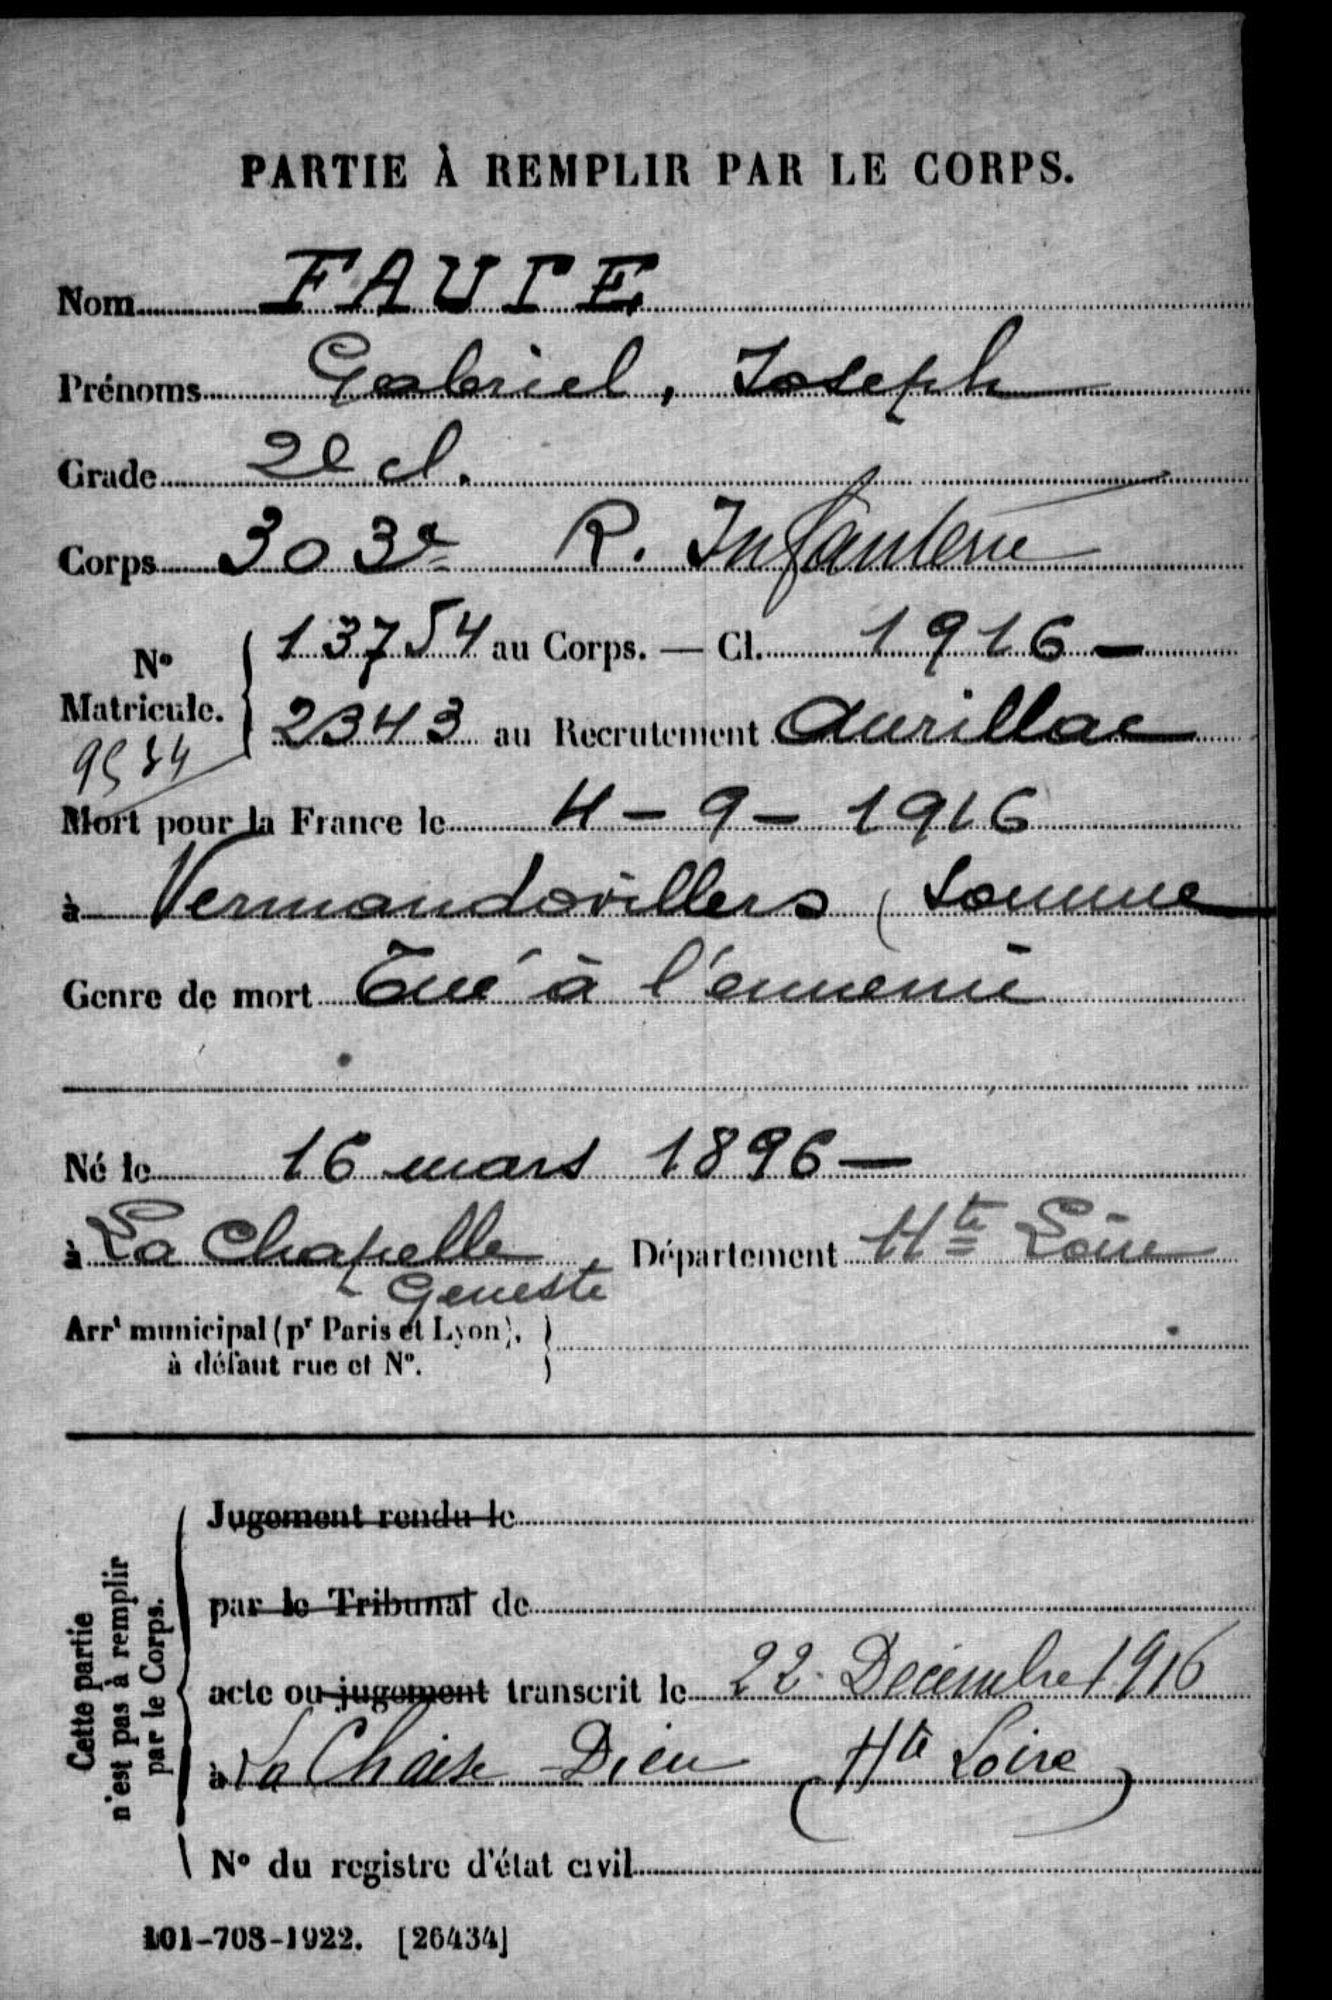 PARTIE À REMPLIR PAR LE CORPS.
Nom FAURE
Prénoms Gabriel, Joseph
Grade 2e cl.
Corps 303e R. Infanterie
N° Matricule. 13754 au Corps. — Cl. 1916 —
2343 au Recrutement Aurillac
Mort pour la France le 4 - 9 - 1916
à Vermandovillers (Somme
Genre de mort Tué à l'ennemi
Né le 16 mars 1896 —
à La Chapelle Geneste Département Hte Loire
Arrt municipal (pr Paris et Lyon),
à défaut rue et N°.
Cette partie
n'est pas à remplir
par le Corps.
Jugement rendu le
par le Tribunal de
acte ou jugement transcrit le 22 Décembre 1916
à La Chaise-Dieu (Hte Loire)
N° du registre d'état civil
101-708-1922. [26434]